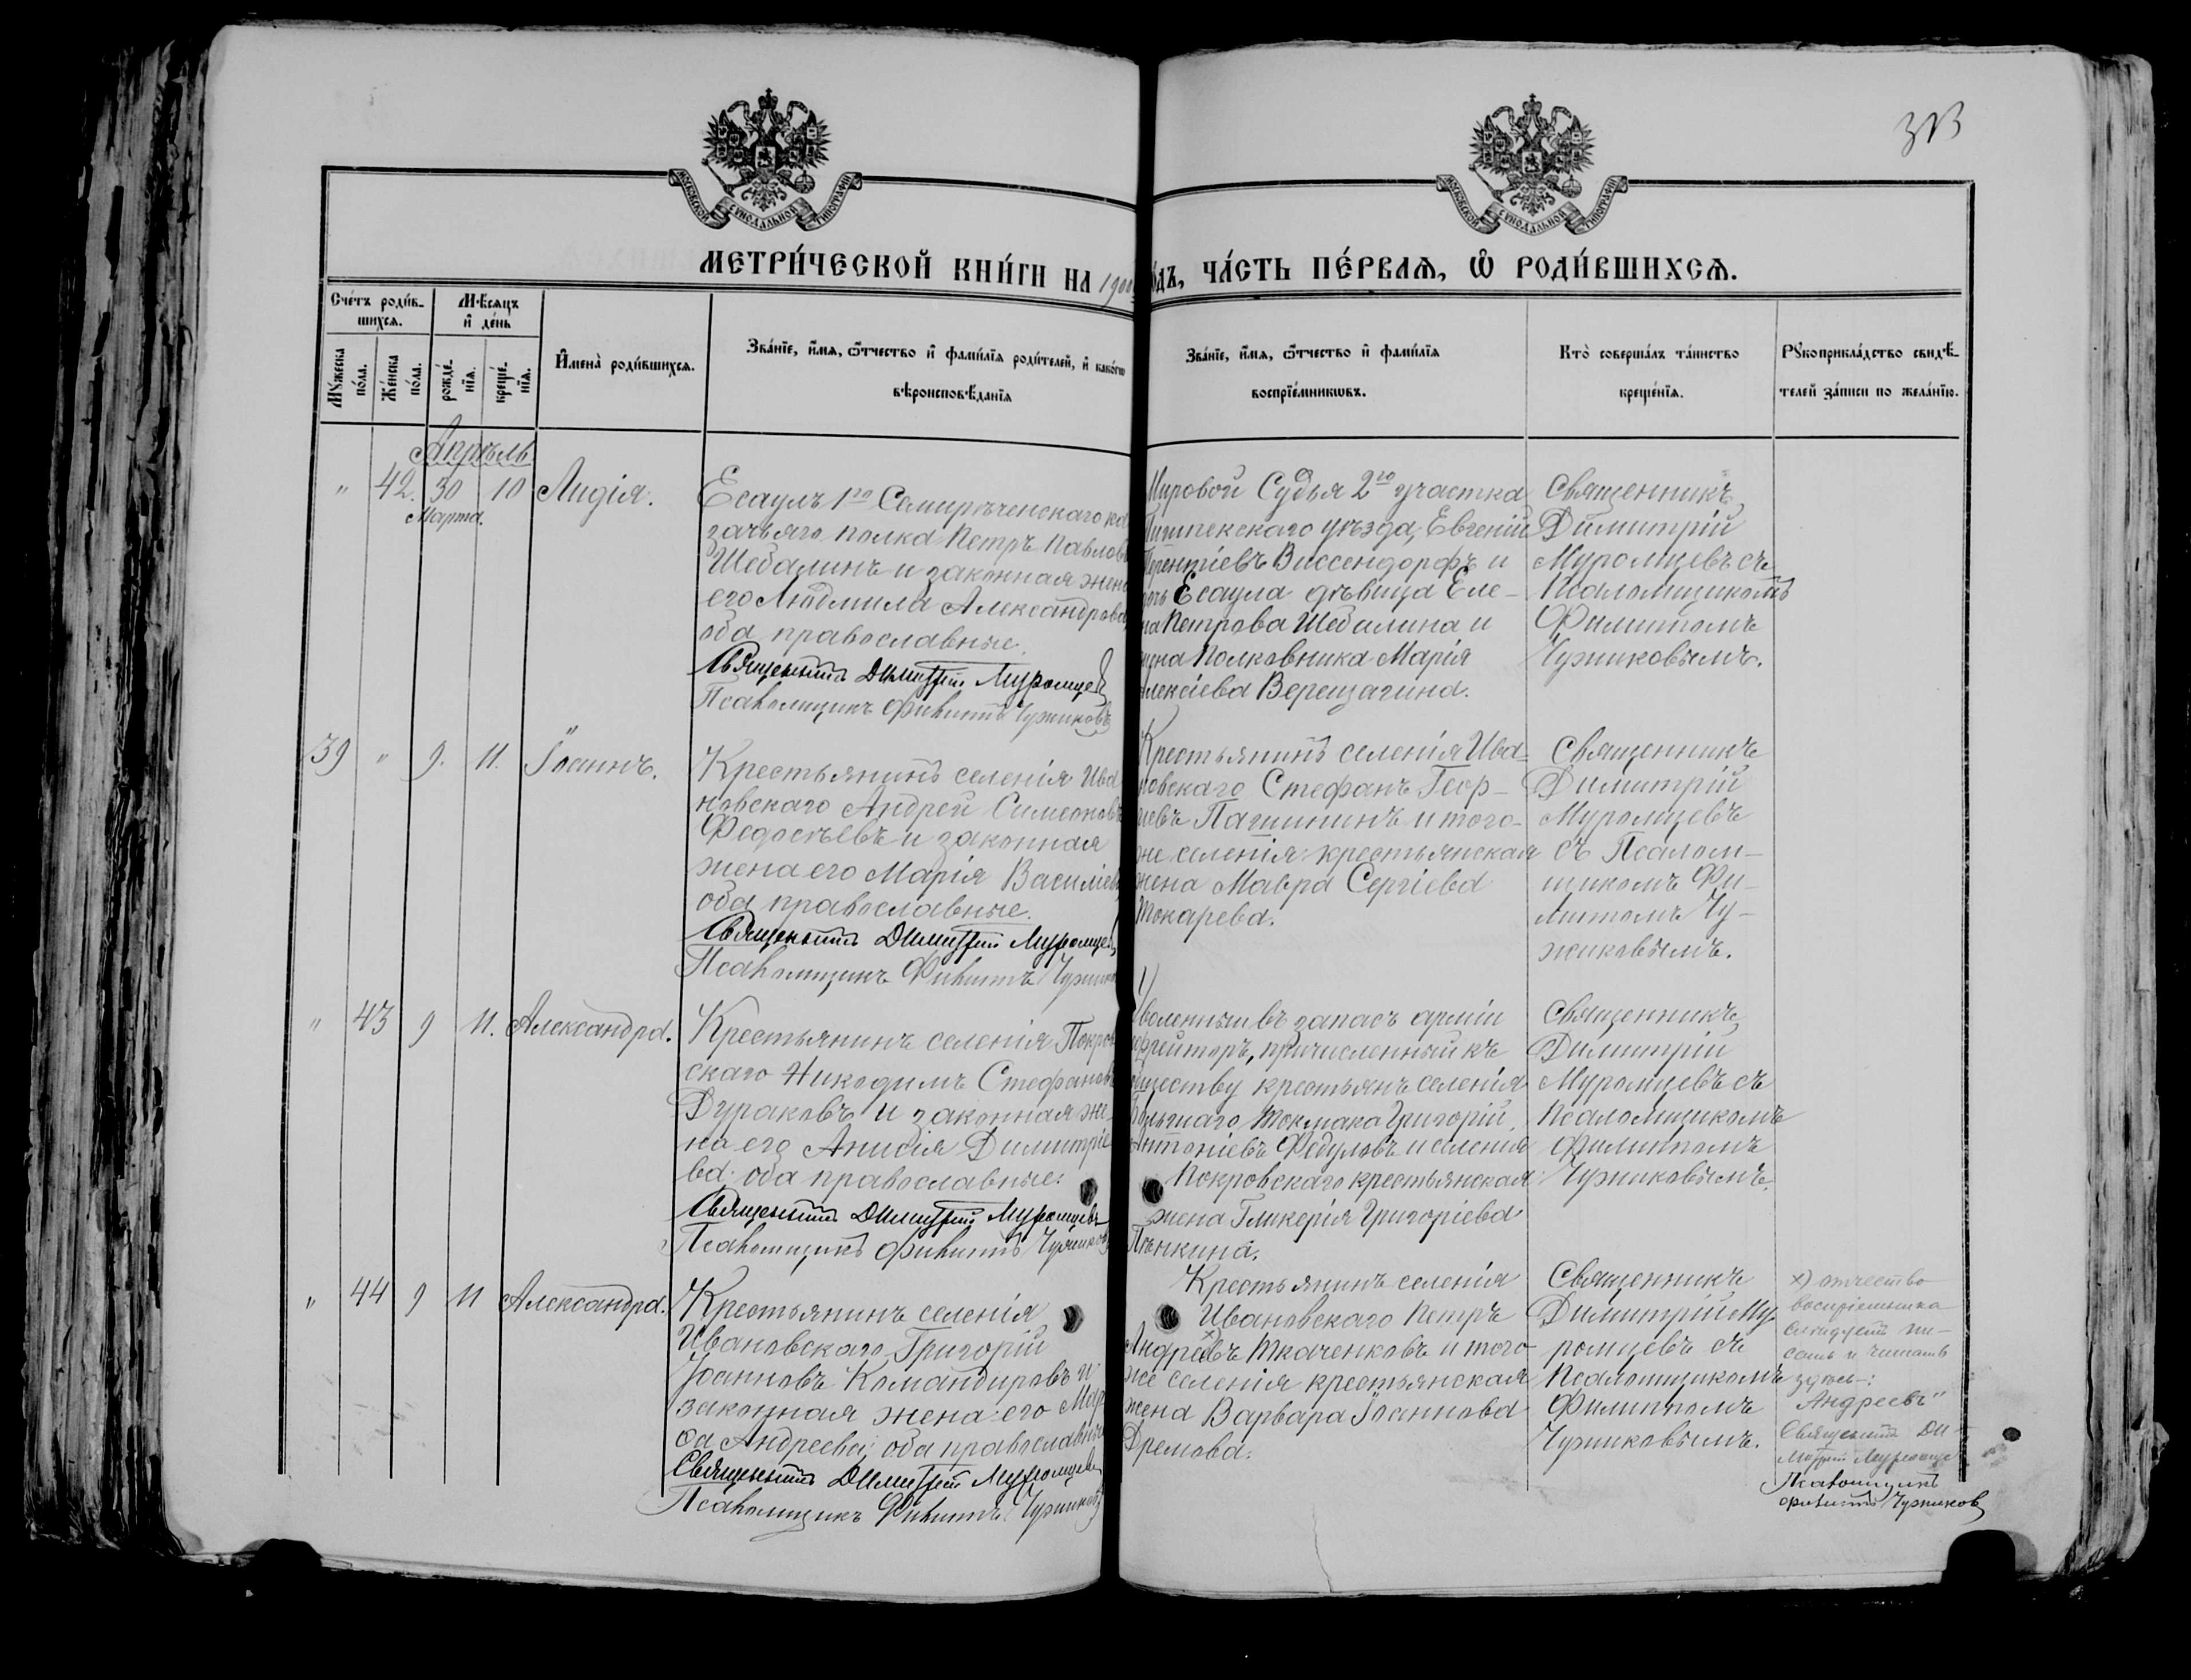 313
МОСКОВСКОЙ СѴНОДАЛЬНОЙ ТИПОГРАФІИ
МОСКОВСКОЙ СѴНОДАЛЬНОЙ ТИПОГРАФІИ
МЕТРИ́ЧЕСКОЙ КНИ́ГИ НА 1900 ГО́ДЪ, ЧА́СТЬ ПЕ́РВАѦ, Ѡ҆ РОДИ́ВШИХСѦ.
Сче́тъ роди́в-
шихсѧ.
Мѣ́сѧцъ
и҆ де́нь
Мꙋ́жеска
по́ла.
Же́нска
по́ла.
рожде́-
нїѧ.
креще́-
нїѧ.
И҆мена̀ роди́вшихсѧ.
Зва́нїе, и҆́мѧ, ѻ҆́тчество и҆ фами́лїѧ роди́телей, и҆ како́гѡ
вѣроисповѣ́данїѧ
Зва́нїе, и҆́мѧ, ѻ҆́тчество и҆ фами́лїѧ
воспрїе́мникѡвъ.
Кто̀ соверша́лъ та́инство
креще́нїѧ.
Рꙋкоприкла́дство свидѣ́-
телей за́писи по жела́нїю.
Апрѣль
" 42. 30 10 Лидія.
Марта.
Есаулъ 1го Семирѣченскаго ка
зачьяго полка Петръ Павловъ
Шебалинъ и законная жена
его Людмила Александрова,
оба православные.
Священникъ Димитрій Муромцевъ
Псаломщикъ Филиппъ Чужиковъ
Мировой Судья 2го участка
Пишпекскаго уѣзда, Евгеній
Терентіевъ Виссендорфъ и
дочь Есаула дѣвица Еле-
на Петрова Шебалина и
жена Полковника Марія
Алексіева Верещагина.
Священникъ
Димитрій
Муромцевъ съ
Псаломщикомъ
Филиппомъ
Чужиковымъ.
39 " 9. 11. Іоаннъ.
Крестьянинъ селенія Ива
новскаго Андрей Симеоновъ
Федосѣевъ и законная
жена его Марія Василіева,
оба православные.
Священникъ Димитрій Муромцевъ
Псаломщикъ Филиппъ Чужиковъ
Крестьянинъ селенія Ива-
новскаго Стефанъ Геор-
гіевъ Пашининъ и того-
же селенія крестьянская
жена Мавра Сергіева
Токарева.
Священникъ
Димитрій
Муромцевъ
съ Псалом-
щикомъ Фи-
липпомъ Чу-
жиковымъ.
" 43 9 11. Александра.
Крестьянинъ селенія Покров
скаго Никодимъ Стефановъ
Дураковъ и законная же-
на его Анисія Димитріе
ва, оба православные.
Священникъ Димитрій Муромцевъ
Псаломщикъ Филиппъ Чужиковъ
Уволенный въ запасъ арміи
ефрейторъ, причисленный къ
обществу крестьянъ селенія
Большаго Токмака Григорій
Антоніевъ Федуловъ и селенія
Покровскаго крестьянская
жена Гликерія Григоріева
Пѣнкина.
Священникъ
Димитрій
Муромцевъ съ
Псаломщикомъ
Филиппомъ
Чужиковымъ.
" 44 9 11 Александра.
Крестьянинъ селенія
Ивановскаго Григорій
Іоанновъ Командировъ и
законная жена его Мар
ѳа Андреева, оба православные
Священникъ Димитрій Муромцевъ
Псаломщикъ Филиппъ Чужиковъ
Крестьянинъ селенія
Ивановскаго Петръ
Андреевъ Ткаченковъ и того-
же селенія крестьянская
жена Варвара Іоаннова
Дремова.
Священникъ
Димитрій Му-
ромцевъ съ
Псаломщикомъ
Филиппомъ
Чужиковымъ.
х) отчество
воспріемника
слѣдуетъ пи-
сать и читать
здѣсь:
"Андреевъ"
Священникъ Ди-
митрій Муромцевъ
Псаломщикъ
Филиппъ Чужиковъ